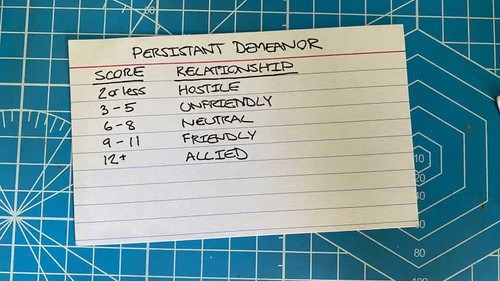 PERSISTANT DEMEANOR
SCORE RELATIONSHIP
2 or less HOSTILE
3-5 UNFRIENDLY
6-8 NEUTRAL
9-11 FRIENDLY
12+ ALLIED
10
20
80
100